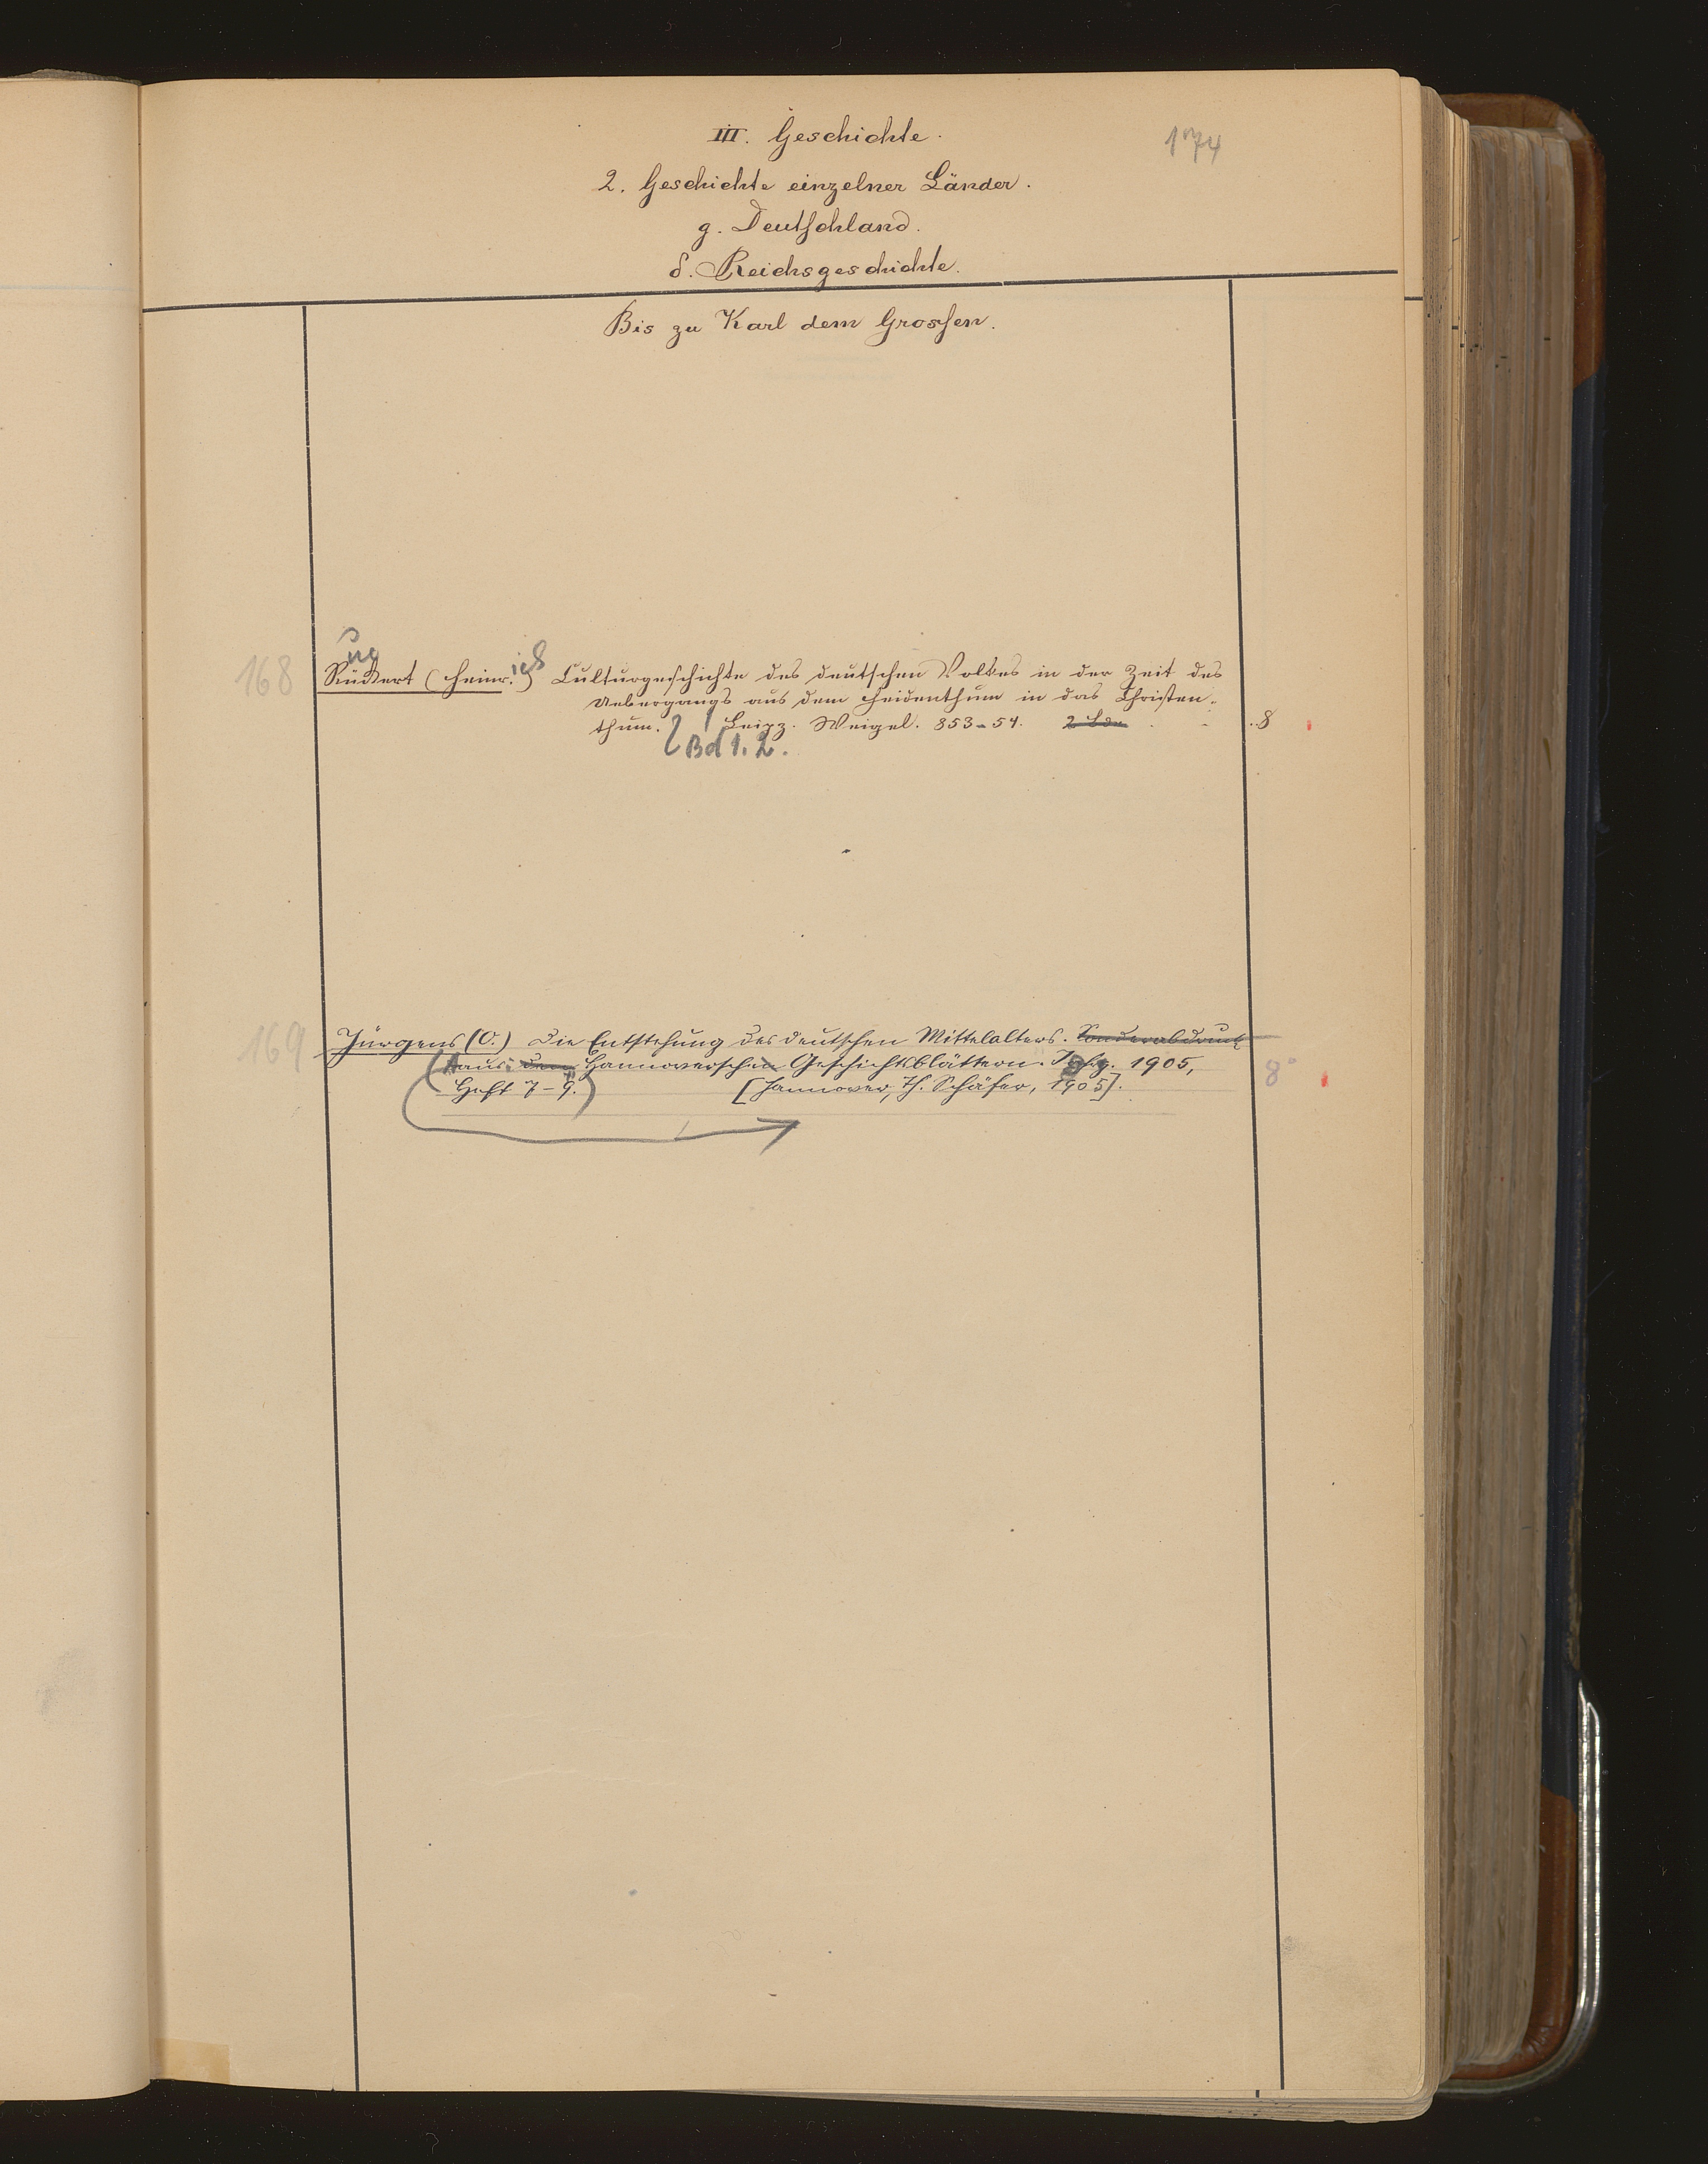 III. Geschichte.
174
2. Geschichte einzelner Länder.
g. Deutschland.
δ. Reichsgeschichte.
Bis zu Karl dem Grossen.
168 Rückert (Heinr.ich) Culturgeschichte des deutschen Volkes in der Zeit des
Uebergangs aus dem Heidenthum in das Christen-
thum. Leipz. Weigel. 853-54. 2 Bde. 8
Bd 1. 2.
169 Jürgens (O.) Die Entstehung des deutschen Mittelalters. Sonderabdruck
(Aus: den Hannoverschen Geschichtsblättern. Jahrg. 1905,
Heft 7-9.) [Hannover, Th. Schäfer, 1905]. 8°